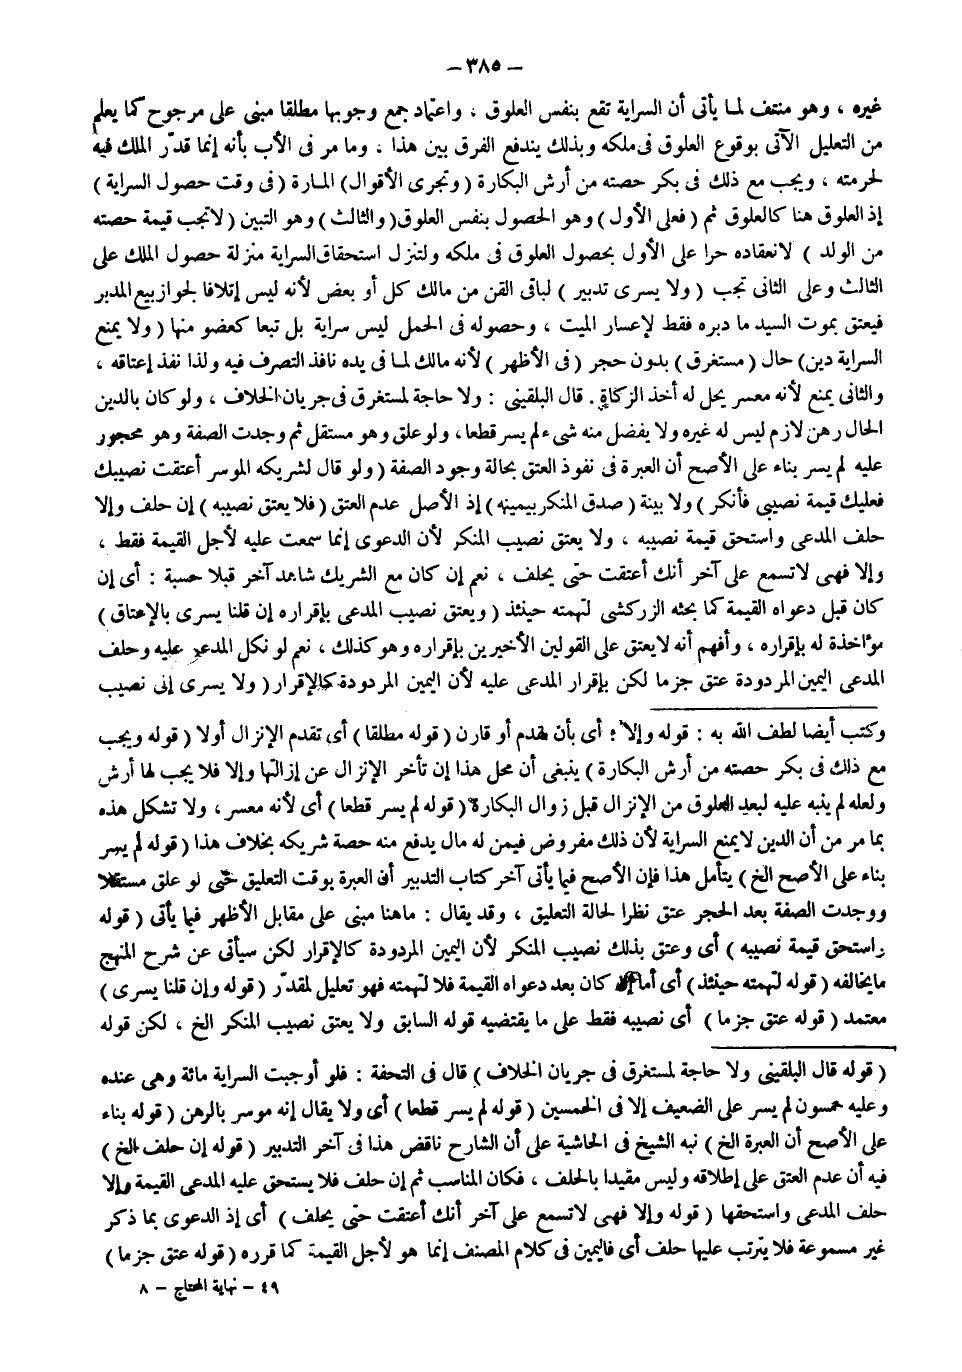 – ٣٨٥ –
غيره ، وهو منتف لما يأتى أن السراية تقع بنفس العلوق ، واعتماد جمع وجوبها مطلقا مبنى على مرجوح كما يعلم
من التعليل الآتى بوقوع العلوق فى ملكه وبذلك يندفع الفرق بين هذا ، وما مر فى الأب بأنه إنما قدّر الملك فيه
لحرمته ، ويجب مع ذلك فى بكر حصته من أرش البكارة ( وتجرى الأقوال ) المارة ( فى وقت حصول السراية )
إذ العلوق هنا كالعلوق ثم ( فعلى الأول ) وهو الحصول بنفس العلوق ( والثالث ) وهو التبين ( لاتجب قيمة حصته
من الولد ) لانعقاده حرا على الأول بحصول العلوق فى ملكه ولتنزل استحقاق السراية منزلة حصول الملك على
الثالث وعلى الثانى تجب ( ولا يسرى تدبير ) لباقى القن من مالك كل أو بعض لأنه ليس إتلافا لجواز بيع المدبر
فيعتق بموت السيد ما دبره فقط لإعسار الميت ، وحصوله فى الحمل ليس سراية بل تبعا كعضو منها ( ولا يمنع
السراية دين ) حال ( مستغرق ) بدون حجر ( فى الأظهر ) لأنه مالك لما فى يده نافذ التصرف فيه ولذا نفذ إعتاقه ،
والثانى يمنع لأنه معسر يحل له أخذ الزكاة . قال البلقينى : ولا حاجة لمستغرق فى جريان الخلاف ، ولو كان بالدين
الحال رهن لازم ليس له غيره ولا يفضل منه شىء لم يسر قطعا ، ولو علق وهو مستقل ثم وجدت الصفة وهو محجور
عليه لم يسر بناء على الأصح أن العبرة فى نفوذ العتق بحالة وجود الصفة ( ولو قال لشريكه الموسر أعتقت نصيبك
فعليك قيمة نصيبى فأنكر ) ولا بينة ( صدق المنكر بيمينه ) إذ الأصل عدم العتق ( فلا يعتق نصيبه ) إن حلف وإلا
حلف المدعى واستحق قيمة نصيبه ، ولا يعتق نصيب المنكر لأن الدعوى إنما سمعت عليه لأجل القيمة فقط ،
وإلا فهى لاتسمع على آخر أنك أعتقت حتى يحلف ، نعم إن كان مع الشريك شاهد آخر قبلا حسبة : أى إن
كان قبل دعواه القيمة كما بحثه الزركشى لتهمته حينئذ ( ويعتق نصيب المدعى بإقراره إن قلنا يسرى بالإعتاق )
مؤاخذة له بإقراره ، وأفهم أنه لايعتق على القولين الأخيرين بإقراره وهو كذلك ، نعم لو نكل المدعى عليه وحلف
المدعى اليمين المردودة عتق جزما لكن بإقرار المدعى عليه لأن اليمين المردودة كالإقرار ( ولا يسرى إلى نصيب
وكتب أيضا لطف الله به : قوله وإلا : أى بأن تقدم أو قارن ( قوله مطلقا ) أى تقدم الإنزال أولا ( قوله ويجب
مع ذلك فى بكر حصته من أرش البكارة ) ينبغى أن محل هذا إن تأخر الإنزال عن إزالتها وإلا فلا يجب لها أرش
ولعله لم ينبه عليه لبعد العلوق من الإنزال قبل زوال البكارة ( قوله لم يسر قطعا ) أى لأنه معسر ، ولا تشكل هذه
بما مر من أن الدين لايمنع السراية لأن ذلك مفروض فيمن له مال يدفع منه حصة شريكه بخلاف هذا ( قوله لم يسر
بناء على الأصح الخ ) يتأمل هذا فإن الأصح فيما يأتى آخر كتاب التدبير أن العبرة بوقت التعليق حتى لو علق مستقلا
ووجدت الصفة بعد الحجر عتق نظرا لحالة التعليق ، وقد يقال : ماهنا مبنى على مقابل الأظهر فيما يأتى ( قوله
واستحق قيمة نصيبه ) أى وعتق بذلك نصيب المنكر لأن اليمين المردودة كالإقرار لكن سيأتى عن شرح المنهج
مايخالفه ( قوله لتهمته حينئذ ) أى أما لو كان بعد دعواه القيمة فلا لتهمته فهو تعليل لمقدّر ( قوله وإن قلنا يسرى )
معتمد ( قوله عتق جزما ) أى نصيبه فقط على ما يقتضيه قوله السابق ولا يعتق نصيب المنكر الخ ، لكن قوله
( قوله قال البلقينى ولا حاجة لمستغرق فى جريان الخلاف ) قال فى التحفة : فلو أوجبت السراية مائة وهى عنده
وعليه خمسون لم يسر على الضعيف إلا فى الخمسين ( قوله لم يسر قطعا ) أى ولا يقال إنه موسر بالرهن ( قوله بناء
على الأصح أن العبرة الخ ) نبه الشيخ فى الحاشية على أن الشارح ناقض هذا فى آخر التدبير ( قوله إن حلف الخ )
فيه أن عدم العتق على إطلاقه وليس مقيدا بالحلف ، فكان المناسب ثم إن حلف فلا يستحق عليه المدعى القيمة وإلا
حلف المدعى واستحقها ( قوله وإلا فهى لاتسمع على آخر أنك أعتقت حتى يحلف ) أى إذ الدعوى بما ذكر
غير مسموعة فلا يترتب عليها حلف أى فاليمين فى كلام المصنف إنما هو لأجل القيمة كما قرره ( قوله عتق جزما )
٤٩ – نهاية المحتاج – ٨